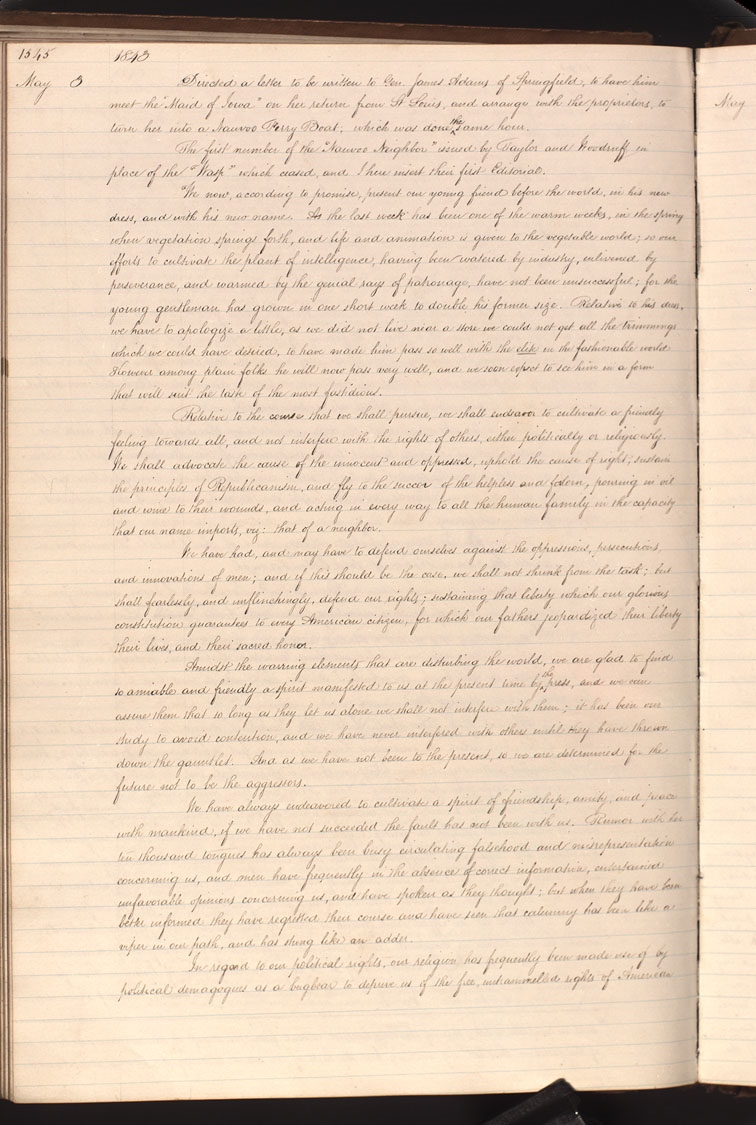 1545 1843
May 3 Directed a letter to be written to Gen. James Adams of Springfield, to have him
meet the "Maid of Iowa" on her return from St Louis, and arrange with the proprietors, to
turn her into a Nauvoo Ferry Boat; which was done the same hour.
The first number of the "Nauvoo Neighbor" issued by Taylor and Woodruff in
place of the "Wasp" which ceased, and I here insert their first Editorial.
"We now, according to promise, present our young friend before the world, in his new
dress, and with his new name. As the last week has been one of the warm weeks, in the spring
when vegetation springs forth, and life and animation is given to the vegetable world; so our
efforts to cultivate the plant of intelligence, having been watered by industry, enlivened by
perseverance, and warmed by the genial rays of patronage, have not been unsuccessful; for the
young gentleman has grown in one short week to double his former size. Relative to his dress,
we have to apologize a little, as we did not live near a store we could not get all the trimmings
which we could have desired, to have made him pass so well with the elite in the fashionable world
However among plain folks he will now pass very well, and we soon expect to see him in a form
that will suit the taste of the most fastidious.
Relative to the course that we shall pursue, we shall endeavor to cultivate a friendly
feeling towards all, and not interfere with the rights of others, either politically or religiously.
We shall advocate the cause of the innocent and oppressed, uphold the cause of right; sustain
the principles of Republicanism, and fly to the succor of the helpless and forlorn, pouring in oil
and wine to their wounds, and acting in every way to all the human family in the capacity
that our name imports, viz: that of a neighbor.
We have had, and may have to defend ourselves against the oppressions, persecutions,
and innovations of men; and if this should be the case, we shall not shrink from the task; but
shall fearlessly, and unflinchingly, defend our rights; sustaining that liberty which our glorious
constitution guarantees to every American citizen, for which our fathers jeopardized their liberty
their lives, and their sacred honor.
Amidst the warring elements that are disturbing the world, we are glad to find
so amiable and friendly a spirit manifested to us at the present time by the press, and we can
assure them that so long as they let us alone we shall not interfere with them; it has been our
study to avoid contention, and we have never interfered with others until they have thrown
down the gauntlet. And as we have not been to the present, so we are determined for the
future not to be the aggressors.
We have always endeavored to cultivate a spirit of friendship, amity, and peace
with mankind, if we have not succeeded the fault has not been with us. Rumor with her
ten thousand tongues has always been busy circulating falsehood and misrepresentation
concerning us, and men have frequently in the absence of correct information, entertained
unfavorable opinions concerning us, and have spoken as they thought; but when they have been
better informed they have regretted their course and have seen that calumny has been like a
viper in our path, and has stung like an adder.
In regard to our political rights, our religion has frequently been made use of by
political demagogues as a bugbear to deprive us of the free, untrammelled rights of American
May